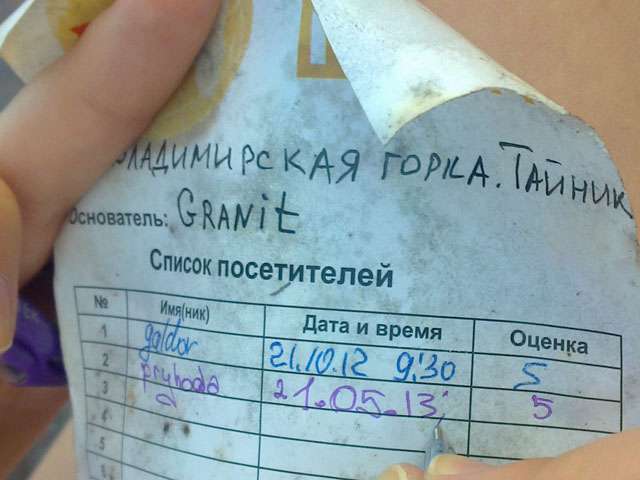 ВЛАДИМИРСКАЯ ГОРКА. ТАЙНИК
Основатель: GRANit
Список посетителей
№ Имя(ник) Дата и время Оценка
1 galdor 21.10.12 9:30 5
2 pryhoda 21.05.13 5
3
4
5
6